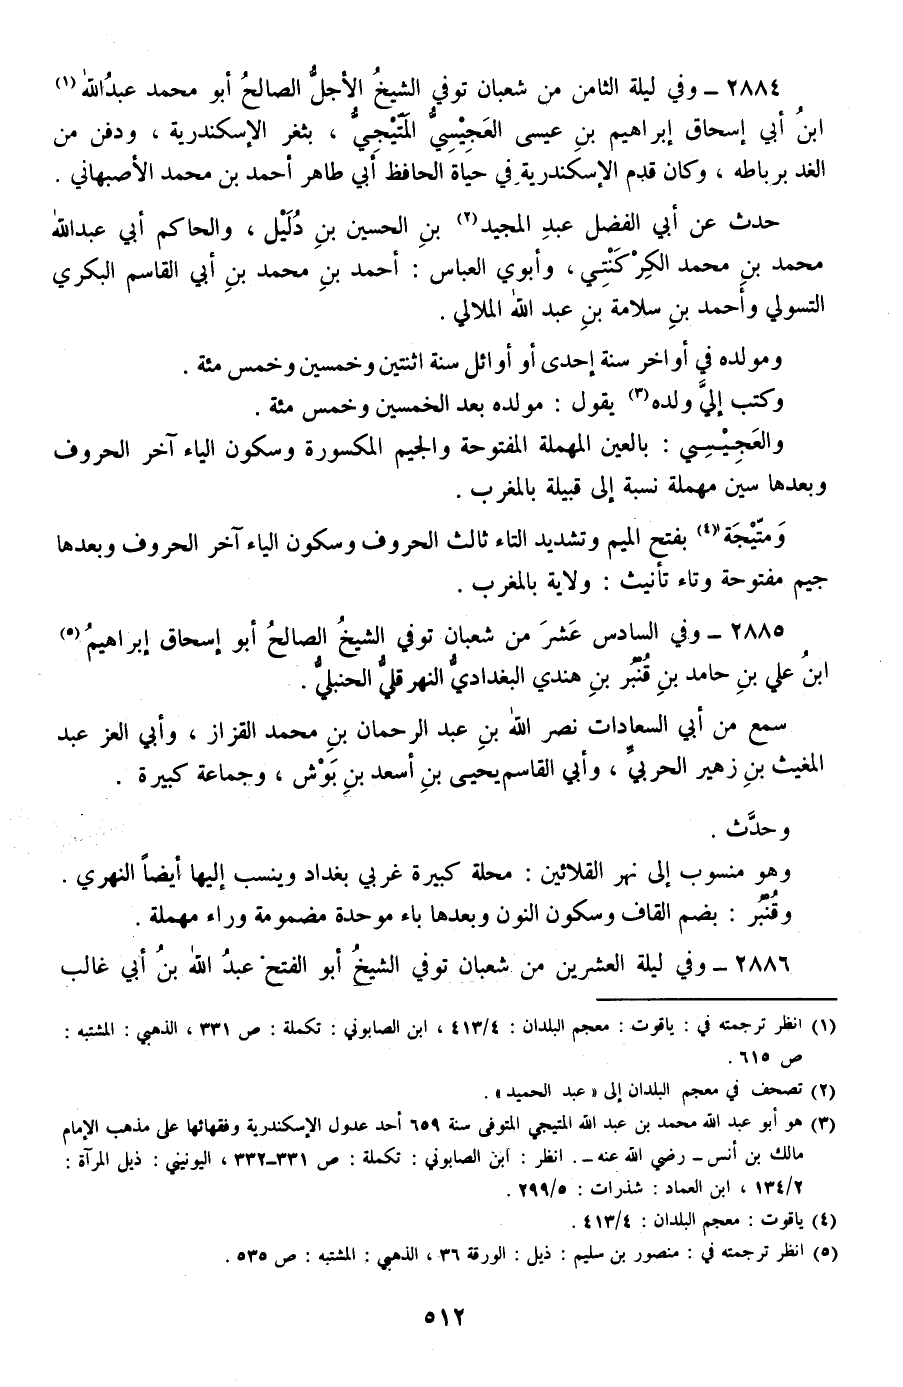 ٢٨٨٤ ــ وفي ليلة الثامن من شعبان توفي الشيخُ الأجلُّ الصالحُ أبو محمد عبدُاللهٰ (١)
ابنُ أبي إسحاق إبراهيم بنِ عيسى العَجِيْسِيُّ المَتِّيْجِيُّ ، بثغر الإسكندرية ، ودفن من
الغد برباطه ، وكان قدم الإسكندرية في حياة الحافظ أبي طاهر أحمد بن محمد الأصبهاني .
حدث عن أبي الفضل عبدِ المجيد (٢) بنِ الحسين بنِ دُلَيْل ، والحاكم أبي عبدالله
محمد بنِ محمد الكِرْكَنْتِي ، وأبوي العباس : أحمد بنِ محمد بنِ أبي القاسم البكري
التسولي وأحمد بنِ سلامة بنِ عبد الله الملالي .
ومولده في أواخر سنة إحدى أو أوائل سنة اثنتين وخمسين وخمس مئة .
وكتب إليَّ ولده (٣) يقول : مولده بعد الخمسين وخمس مئة .
والعَجِيْسِي : بالعين المهملة المفتوحة والجيم المكسورة وسكون الياء آخر الحروف
وبعدها سين مهملة نسبة إلى قبيلة بالمغرب .
وَمتِّيْجَة (٤) بفتح الميم وتشديد التاء ثالث الحروف وسكون الياء آخر الحروف وبعدها
جيم مفتوحة وتاء تأنيث : ولاية بالمغرب .
٢٨٨٥ ــ وفي السادس عَشرَ من شعبان توفي الشيخُ الصالحُ أبو إسحاق إبراهيمُ (٥)
ابنُ علي بنِ حامد بنِ قُنْبُر بنِ هندي البغداديُّ النهرقليُّ الحنبليُّ .
سمع من أبي السعادات نصر الله بنِ عبد الرحمان بنِ محمد القزاز ، وأبي العز عبد
المغيث بنِ زهير الحربيِّ ، وأبي القاسم يحيى بنِ أسعد بنِ بَوْش ، وجماعة كبيرة .
وحدَّث .
وهو منسوب إلى نهر القلائين : محلة كبيرة غربي بغداد وينسب إليها أيضاً النهري .
وقُنْبُر : بضم القاف وسكون النون وبعدها باء موحدة مضمومة وراء مهملة .
٢٨٨٦ ــ وفي ليلة العشرين من شعبان توفي الشيخُ أبو الفتح عبدُ الله بنُ أبي غالب
(١) انظر ترجمته في : ياقوت : معجم البلدان : ٤١٣/٤ ، ابن الصابوني : تكملة : ص ٣٣١ ، الذهبي : المشتبه :
ص ٦١٥ .
(٢) تصحف في معجم البلدان إلى « عبد الحميد » .
(٣) هو أبو عبد الله محمد بن عبد الله المتيجي المتوفى سنة ٦٥٩ أحد عدول الإسكندرية وفقهائها على مذهب الإمام
مالك بن أنس ــ رضي الله عنه ــ . انظر : ابن الصابوني : تكملة : ص ٣٣١ــ٣٣٢ ، اليونيني : ذيل المرآة :
١٣٤/٢ ، ابن العماد : شذرات : ٢٩٩/٥ .
(٤) ياقوت : معجم البلدان : ٤١٣/٤ .
(٥) انظر ترجمته في : منصور بن سليم : ذيل : الورقة ٣٦ ، الذهبي : المشتبه : ص ٥٣٥ .
٥١٢